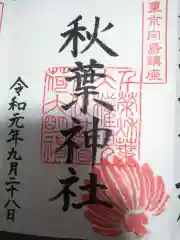 東京向島鎮座
秋葉神社
令和元年九月二十八日